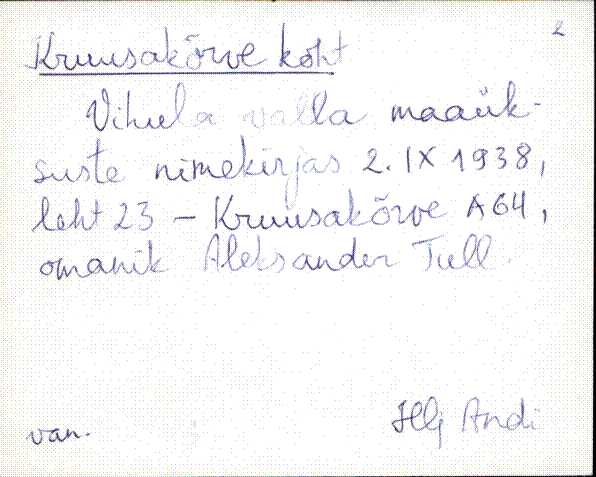 2
Kruusakõrve koht
Vihula valla maaük-
suste nimekirjas 2. IX 1938,
leht 23 - Kruusakõrve A64,
omanik Aleksander Tull.
van. Hlj Andi